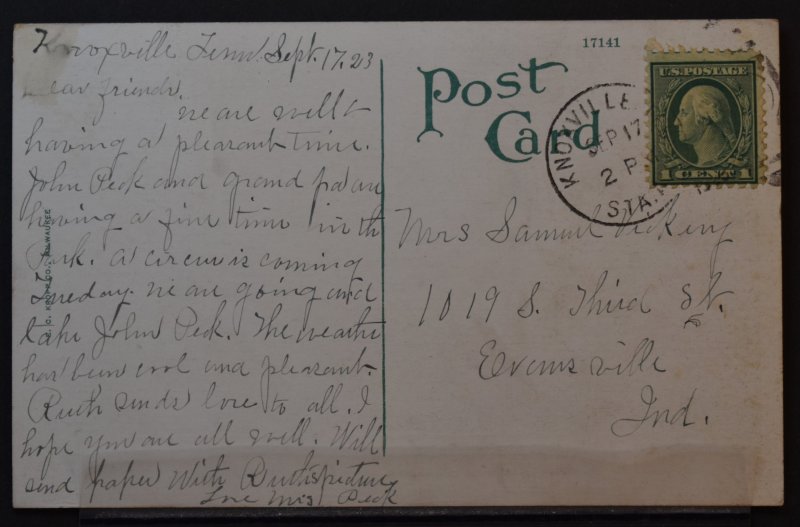 Knoxville Tenn. Sept. 17, 23
Dear friends,
We are well &
having a pleasant time.
John Peck and grand pa are
having a fine time in the
Park. A circus is coming
Tuesday. We are going and
take John Peck. The weather
has been cool and pleasant.
Ruth sends love to all. I
hope you are all well. Will
send paper with Ruth's picture
Love Mrs Peck
E. C. KROPP CO., MILWAUKEE
17141
Post
Card
KNOXVILLE
SEP 17
2 P
STA.
U.S. POSTAGE
1 CENT 1
Mrs Samuel
1019 S. Third St.
Evansville
Ind.